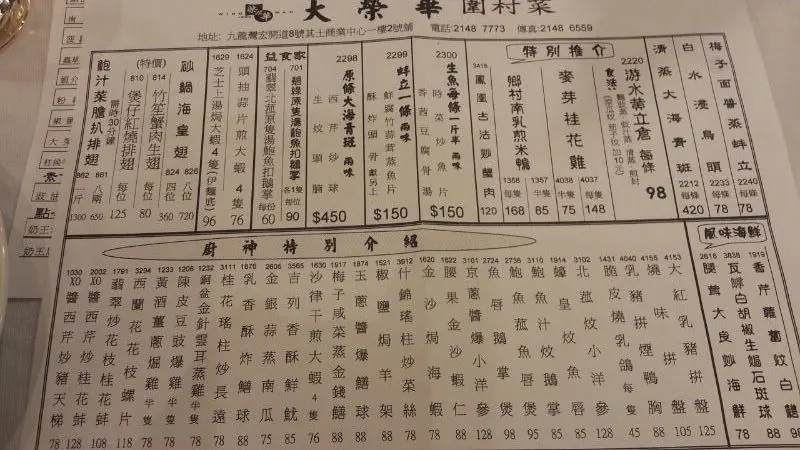 大榮華 圍村菜
WING WAH
地址: 九龍灣宏開道8號其士商業中心一樓2號舖 電話:2148 7773 傳真:2148 6559
特別推介
梅子面醬蒸蚌立 2240 每條 78
白水浸烏頭 2233 每條 78
清蒸大海青斑 2212 每條 420
2220 游水蚌立倉 每條 98
4037 4038 麥芽桂花雞 半隻 75 每隻 148
1357 1358 鄉村南乳煎米鴨 半隻 85 每隻 168
3416 鳳凰古法炒蟹肉 120
2300 生魚每條一斤半 兩味
時菜炒魚片
香茜豆腐骨湯
$150
2299 蚌立一條 兩味
鮮腐竹蒜茸蒸魚片
酥炸頭骨
$150
2298 原條大海青斑 兩味
西芹炒球
生炆頭腩
$450
益食家
701 碧綠原隻湯鮑魚扣鵝掌 各1隻 每位 90
704 翡翠北菇原隻湯鮑魚扣鵝掌 每位 60
1624 頭抽蒜片煎大蝦 4隻 76
1629 芝士上湯焗大蝦 4隻 (伊麵底) 96
砂鍋海皇翅 826 四位 360 824 八位 720
(特價)
814 竹笙蟹肉生翅 每位 80
810 煲仔紅燒排翅 需時30分鐘 每位 125
鮑汁菜膽扒排翅 861 八兩 650 862 一斤 1300
風味海鮮
1919 香芹雜菌炆
3838 瓦罉白胡椒生焗石斑球 88
2618 陳茸大良炒海鮮 78
廚神特別介紹
4153 大紅乳豬拼盤 125
4155 燒味拼盤 105
4040 乳豬拼煙鴨胸 88
4030 脆皮燒乳鴿 每隻 45
1432 北菇炆小洋參 128
1901 蠔皇炆魚唇 85
3110 鮑魚汁炆鵝掌 85
2739 鮑魚菇唇煲 95
2724 魚唇鵝掌煲 98
3010 京蔥爆小洋參 128
1622 腰果金沙蝦仁 98
1620 金沙焗海蝦 88
3912 什錦瑤柱炒菜絲 88
1521 椒鹽焗羊架 88
1874 玉蔥醬爆鱔球 88
1917 梅子咸菜蒸金錢鱔 88
1630 沙律干煎大蝦 4隻 76
3565 吉列香酥鮮魷 85
2606 金銀蒜蒸南瓜 75
1876 乳香酥炸鱔球 88
3111 桂花瑤柱炒長遠 88
1232 銅盆金針雲耳蒸雞 半隻 78
1206 陳皮豆豉爆雞 半隻 78
1233 黃酒薑蔥焗雞 半隻 78
1256 西蘭花炒花枝片 78
1791 翡翠炒花枝螺片 118
2002 XO醬西芹炒桂花蚌 108
1030 XO醬西芹炒豬天梯 78